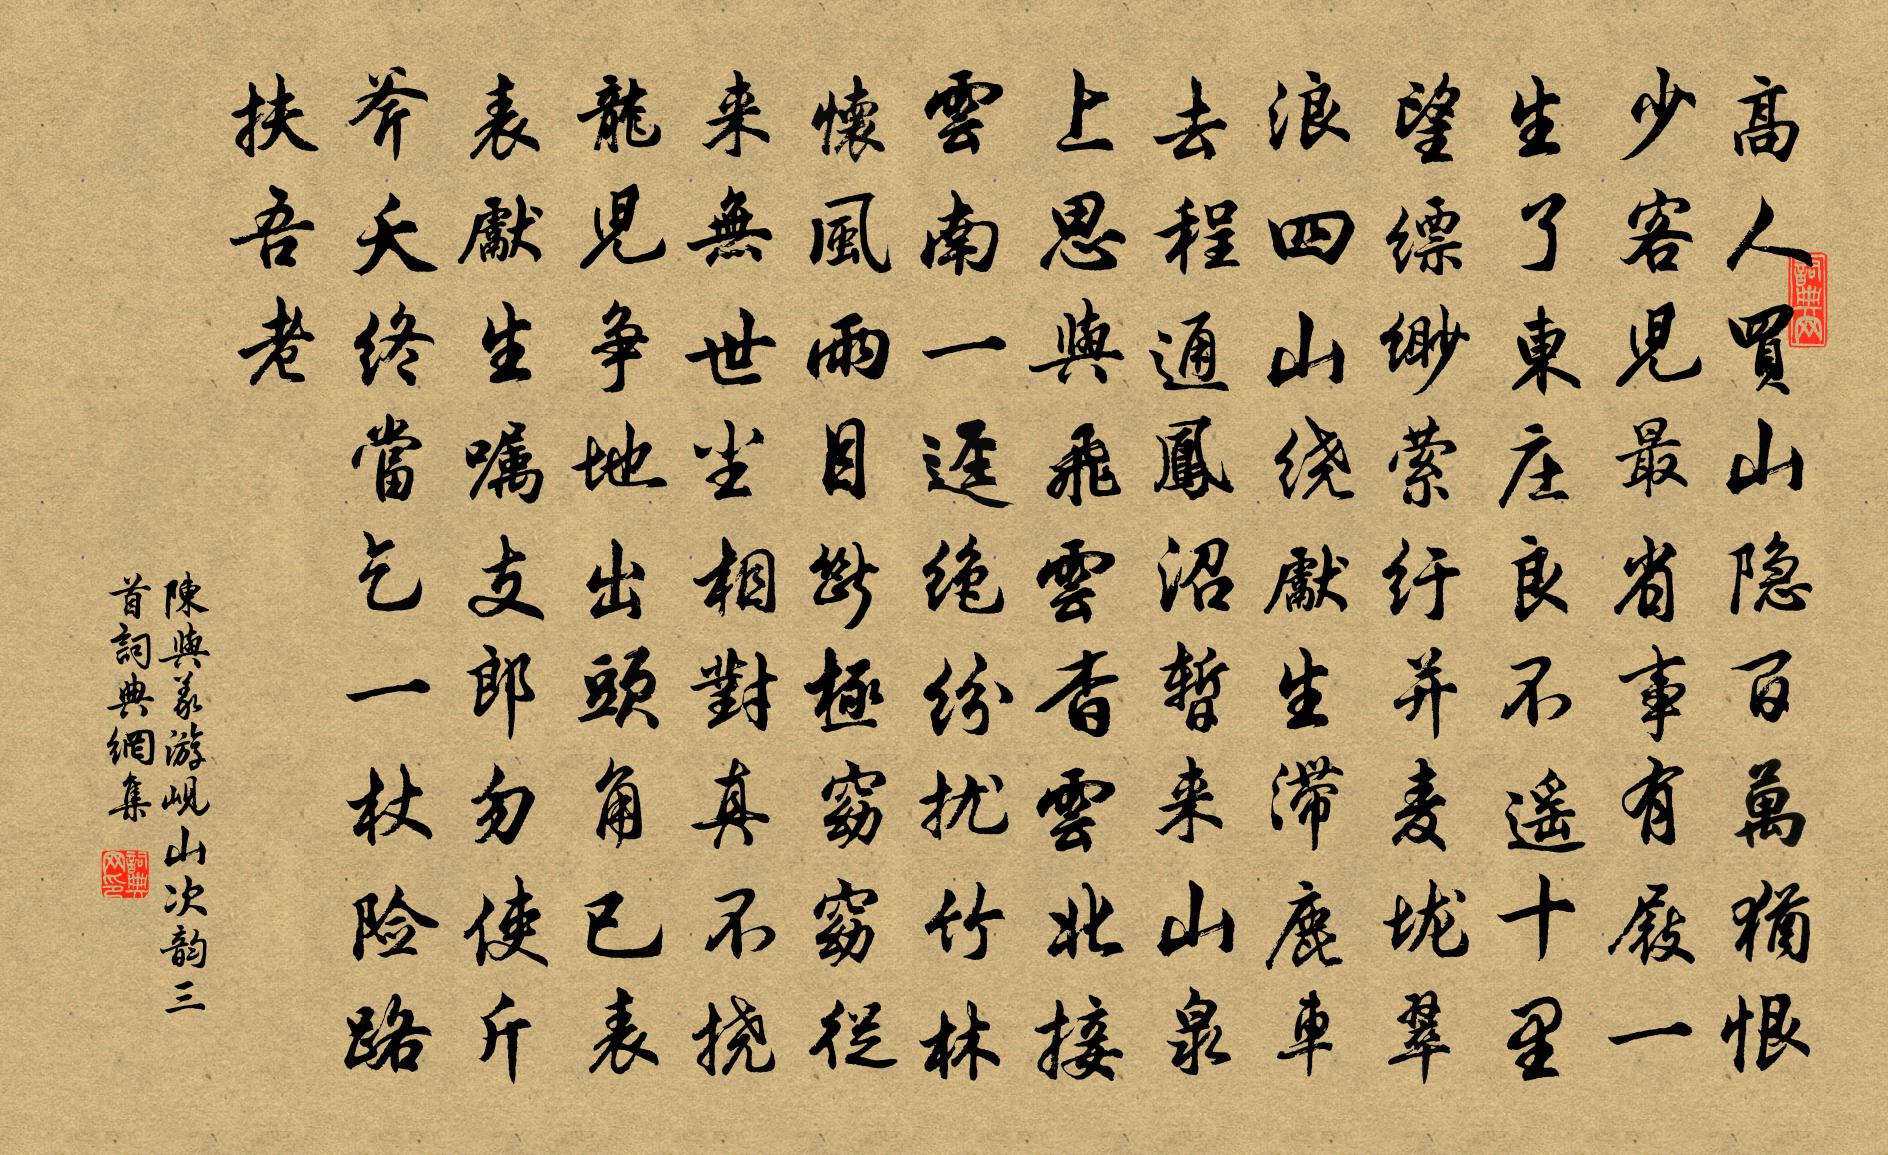 高人買山隐百萬猶恨
少客児最省事有屐一
生了東庄良不遥十里
望缥缈萦纡并麦垅翠
浪四山绕獻生滞鹿車
去程通鳳沼暂来山泉
上思與飛雲杳雲北接
雲南一迳绝纷扰竹林
懷風雨目斷極窈窈從
来無世尘相對真不挠
龍児争地出頭角已表
表獻生嘱支郎勿使斤
斧夭终當乞一杖险路
扶吾老
陳與義游岘山次韵三
首詞典網集
詞典网
詞典网印